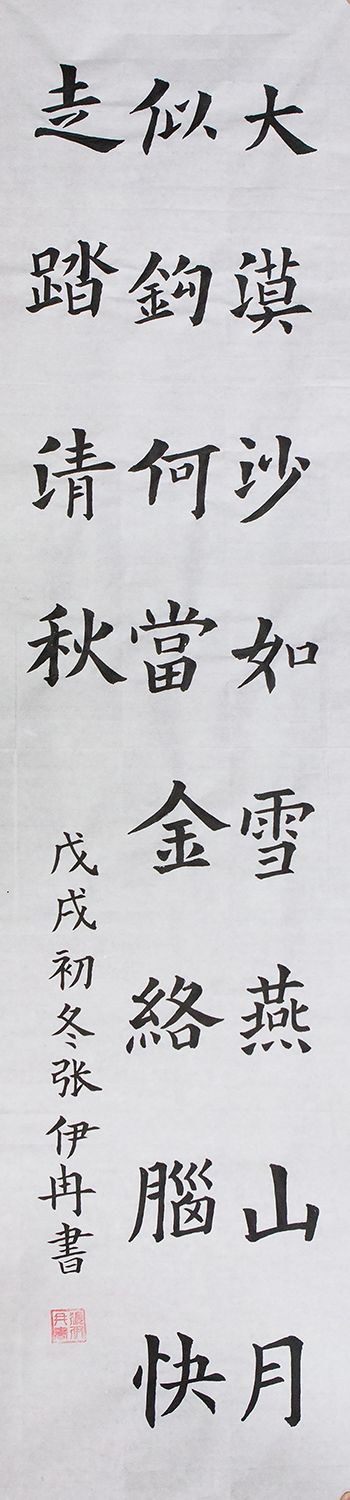 大漠沙如雪燕山月
似鈎何當金絡腦快
走踏清秋
戊戌初冬张伊冉書